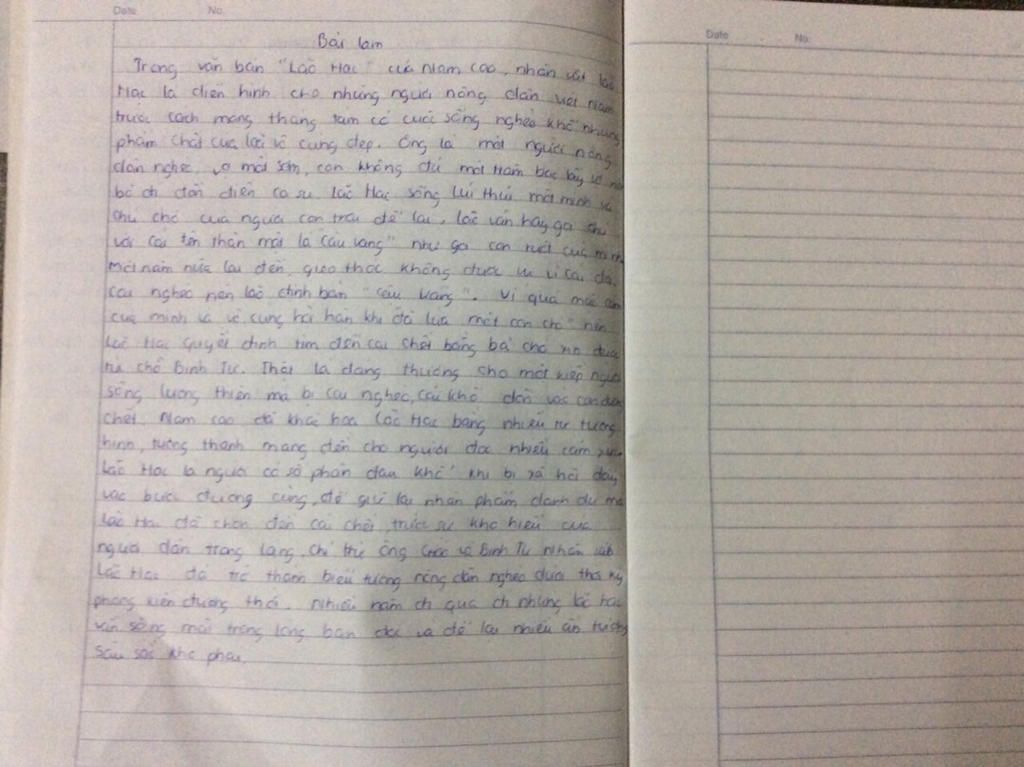 Date No.
Date No.
Bài làm
Trong văn bản "Lão Hạc" của Nam Cao, nhân vật lão
Hạc là điển hình cho những người nông dân việt Nam
trước cách mạng tháng tám có cuộc sống nghèo khổ nhưng
phẩm chất của lại vô cùng đẹp. Ông là một người nông
dân nghèo, vợ mất sớm, con không đủ một trăm bạc lấy vợ nên
bỏ đi đồn điền cao su. Lão Hạc sống lủi thủi một mình và
chú chó của người con trai để lại. Lão vẫn hay gọi chú
với cái tên thân mật là cậu vàng" như gọi con ruột của mình
Một năm nữa lại đến, gieo thóc không được vì cái đói,
cái nghèo nên lão định bán "cậu vàng". Vì quá
của mình và vô cùng hối hận khi đã lừa một con chó" nên
Lão Hạc quyết định tìm đến cái chết bằng bả chó xin được
từ chỗ Binh Tư. Thật là đáng thương cho một kiếp người
sống lương thiện mà bị cái nghèo, cái khổ dồn vào con đường
chết. Nam Cao đã khắc họa Lão Hạc bằng nhiều từ tượng
hình, tượng thanh mang đến cho người đọc nhiều cảm xúc
Lão Hạc là người có số phận đau khổ khi bị xã hội đẩy
vào bước đường cùng, để giữ lại nhân phẩm danh dự mà
Lão Hạc đã chọn đến cái chết, trước sự khó hiểu của
người dân trong làng, chỉ trừ ông Giáo và Binh Tư. Nhân vật
Lão Hạc đã trở thành biểu tượng nông dân nghèo dưới thời kỳ
phong kiến đương thời. Nhiều năm đi qua đi nhưng lão hạc
vẫn sống mãi trong lòng bạn đọc và để lại nhiều ấn tượng
sâu sắc khó phai